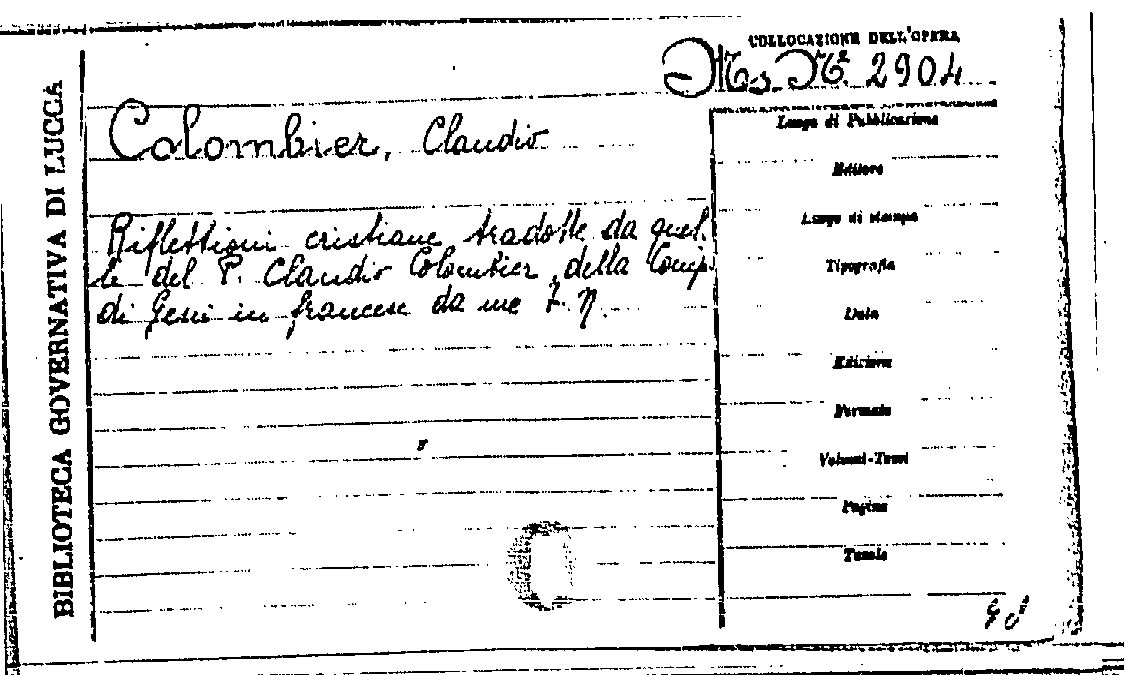 BIBLIOTECA GOVERNATIVA DI LUCCA
COLLOCAZIONE DELL'OPERA
Ms. Nº 2904
Colombier, Claudio
Riflettioni cristiane tradotte da quel-
le del P. Claudio Colombier della Comp.
di Gesù in francese da me
Luogo di Pubblicazione
Editore
Luogo di stampa
Tipografia
Data
Edizione
Formato
Volumi-Tomi
Pagine
Tavole